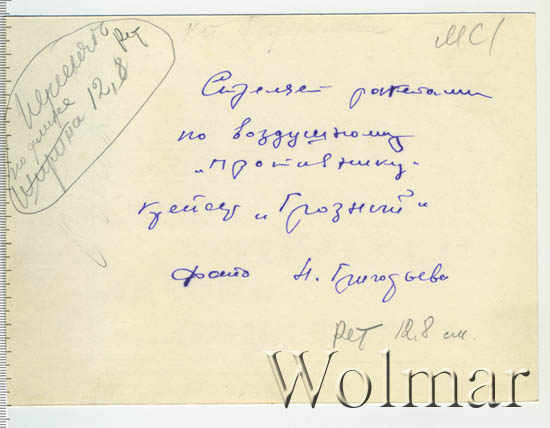 МС1
рет
12,8
ширина
Стреляет ракетами
по воздушному
„противнику"
крейсер „Грозный"
фото Н. Григорьева
рет 12,8 см.
Wolmar